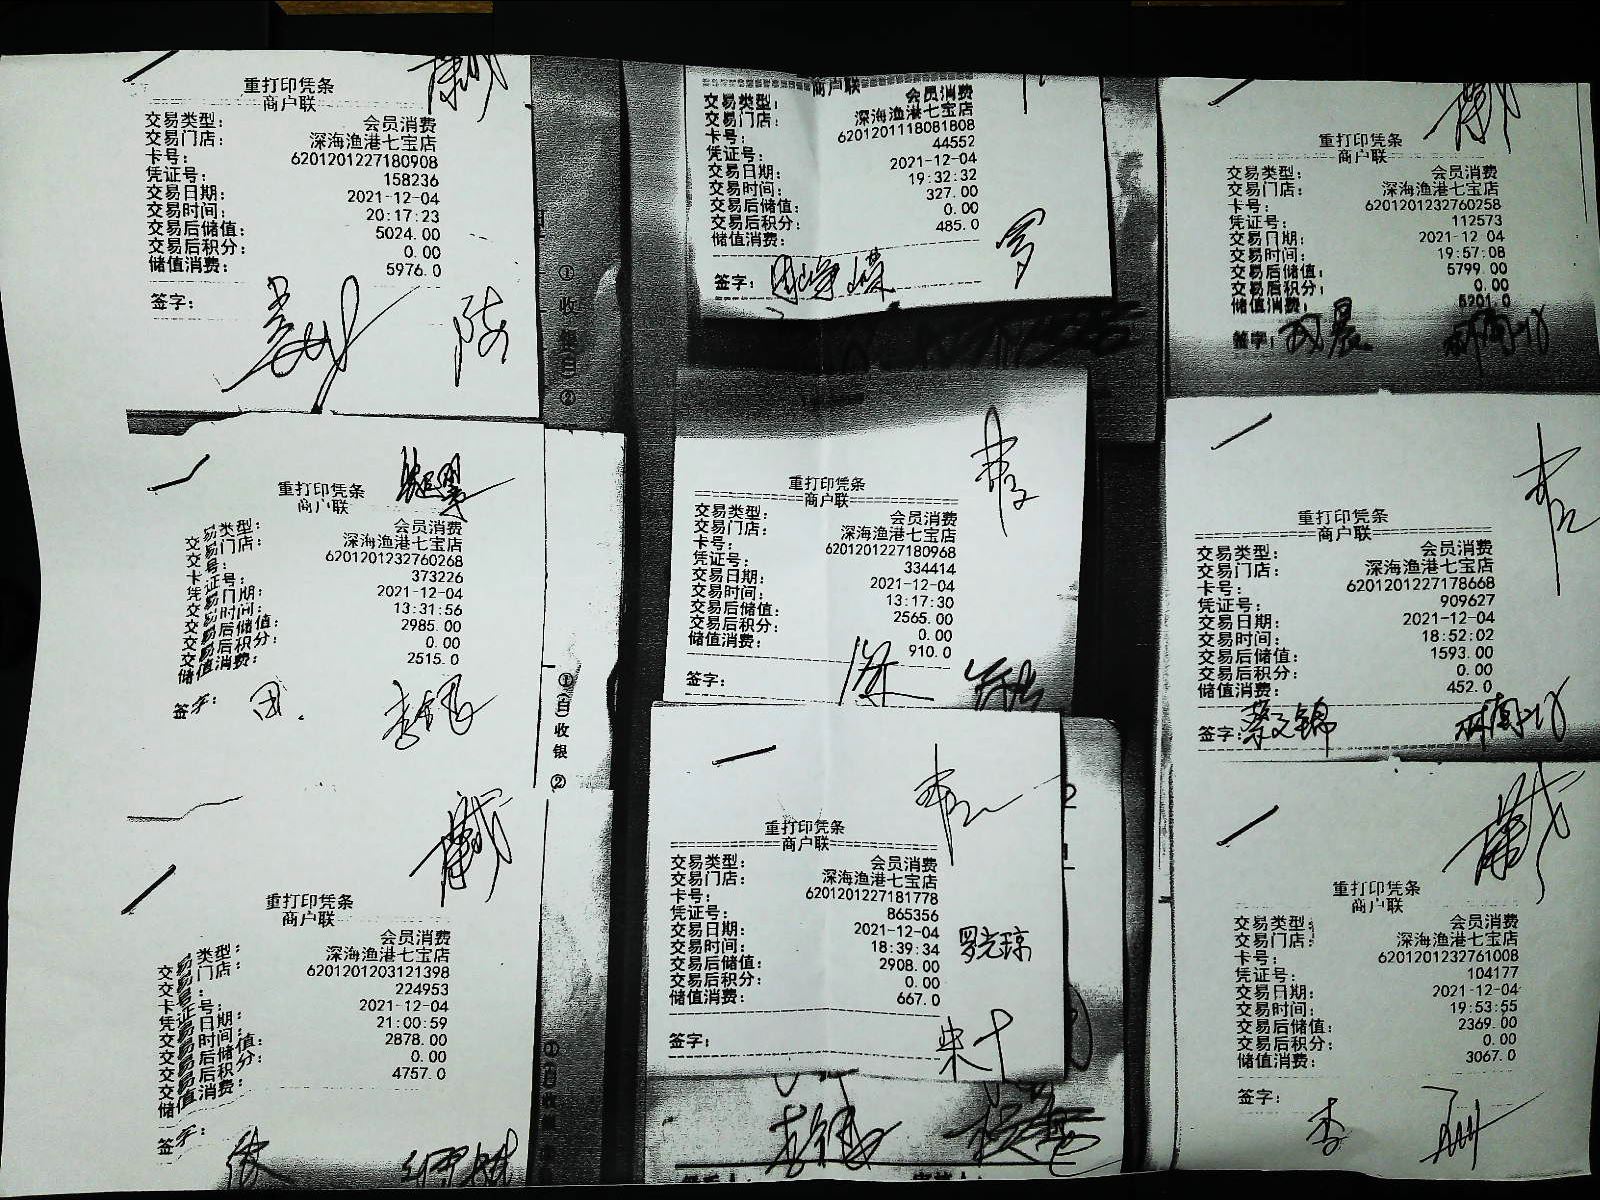 重打印凭条
商户联
交易类型: 会员消费
交易门店: 深海渔港七宝店
卡号: 6201201227180908
凭证号: 158236
交易日期: 2021-12-04
交易时间: 20:17:23
交易后储值: 5024.00
交易后积分: 0.00
储值消费: 5976.0
签字:
商户联
交易类型: 会员消费
交易门店: 深海渔港七宝店
卡号: 6201201118081808
凭证号: 44552
交易日期: 2021-12-04
交易时间: 19:32:32
交易后储值: 327.00
交易后积分: 0.00
储值消费: 485.0
签字:
罗
重打印凭条
商户联
交易类型: 会员消费
交易门店: 深海渔港七宝店
卡号: 6201201232760258
凭证号: 112573
交易日期: 2021-12-04
交易时间: 19:57:08
交易后储值: 5799.00
交易后积分: 0.00
储值消费: 5201.0
签字:
①收银(白)②
重打印凭条
商户联
交易类型: 会员消费
交易门店: 深海渔港七宝店
卡号: 6201201232760268
凭证号: 373226
交易日期: 2021-12-04
交易时间: 13:31:56
交易后储值: 2985.00
交易后积分: 0.00
储值消费: 2515.0
签字:
重打印凭条
商户联
交易类型: 会员消费
交易门店: 深海渔港七宝店
卡号: 6201201227180968
凭证号: 334414
交易日期: 2021-12-04
交易时间: 13:17:30
交易后储值: 2565.00
交易后积分: 0.00
储值消费: 910.0
签字:
重打印凭条
商户联
交易类型: 会员消费
交易门店: 深海渔港七宝店
卡号: 6201201227178668
凭证号: 909627
交易日期: 2021-12-04
交易时间: 18:52:02
交易后储值: 1593.00
交易后积分: 0.00
储值消费: 452.0
签字: 蔡文锦
①(白)收银②
重打印凭条
商户联
交易类型: 会员消费
交易门店: 深海渔港七宝店
卡号: 6201201203121398
凭证号: 224953
交易日期: 2021-12-04
交易时间: 21:00:59
交易后储值: 2878.00
交易后积分: 0.00
储值消费: 4757.0
签字:
重打印凭条
商户联
交易类型: 会员消费
交易门店: 深海渔港七宝店
卡号: 6201201227181778
凭证号: 865356
交易日期: 2021-12-04
交易时间: 18:39:34
交易后储值: 2908.00
交易后积分: 0.00
储值消费: 667.0
签字:
罗光琼
重打印凭条
商户联
交易类型: 会员消费
交易门店: 深海渔港七宝店
卡号: 6201201232761008
凭证号: 104177
交易日期: 2021-12-04
交易时间: 19:53:55
交易后储值: 2369.00
交易后积分: 0.00
储值消费: 3067.0
签字:
李